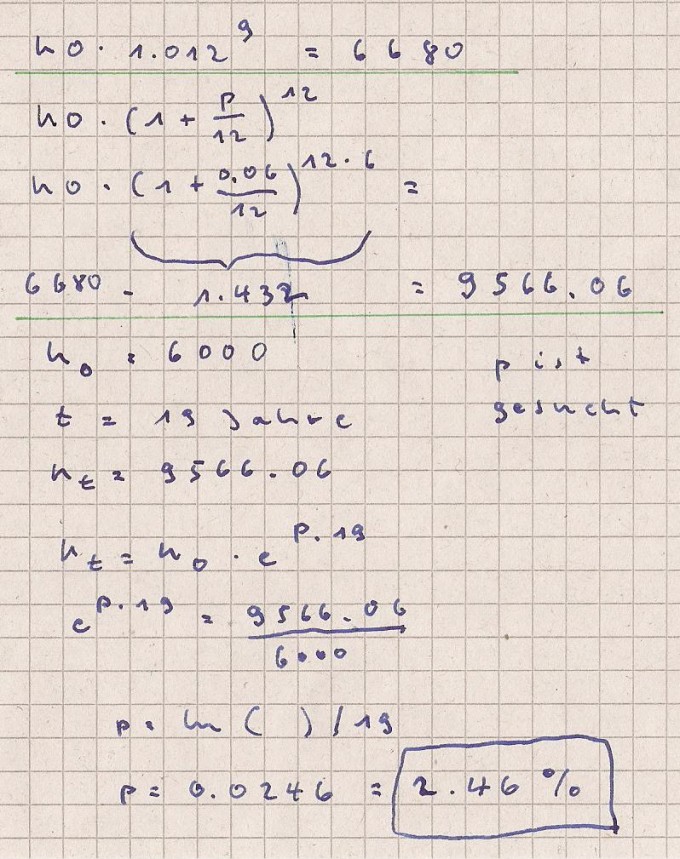 h0 · 1.012^9 = 6680
h0 · (1 + p/12)^12
h0 · (1 + 0.06/12)^12·6 =
6680 · 1.432 = 9566.06
h₀ = 6000
p ist
t = 19 Jahre
gesucht
hₜ = 9566.06
hₜ = h₀ · e^p·19
e^p·19 = 9566.06/6000
p = ln ( ) / 19
p = 0.0246 = 2.46 %